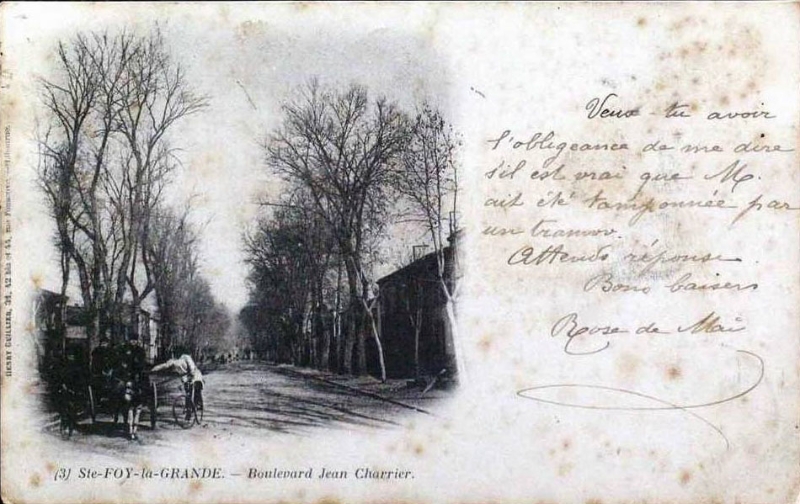 Veux-tu avoir
l'obligeance de me dire
s'il est vrai que M.
ait été tamponnée par
un tramw.
Attends réponse
Bons baisers
Rose de Mai
HENRY GUILLIER,
(3) Ste-FOY-la-GRANDE. — Boulevard Jean Charrier.